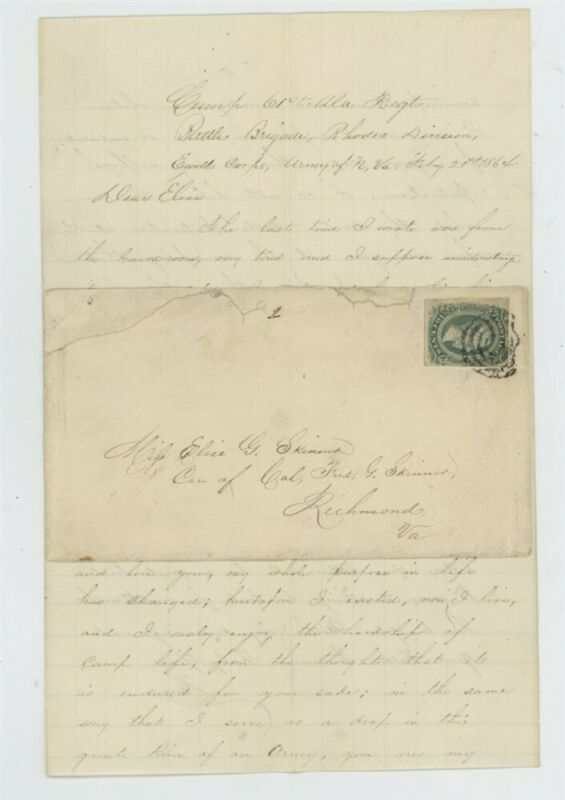 Camp 61st Ala Regt
Battles Brigade, Rhodes Division,
Ewells Corps, Army of N, Va. Feby 21st 1864
Dear Elise
The last time I wrote was from
the Guard room, very tired and I suppose uninteresting,
2
Miss Elise G. Skinner
Care of Col, Fred, G. Skinner,
Richmond,
Va
and love you, my whole purpose in life
has changed; heretofore I existed, now, I live,
and I really enjoy the hardships of
camp life, from the thought that it
is endured for your sake; in the same
way that I serve as a drop in this
great River of an Army, you are my